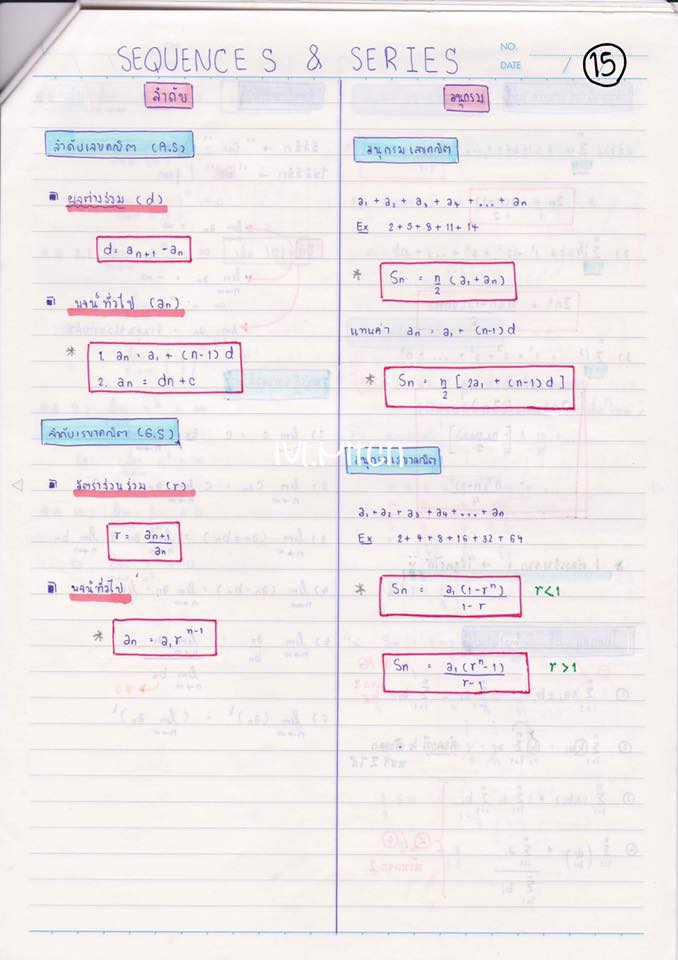 SEQUENCES & SERIES
NO.
DATE /
15
ลำดับ
ลำดับเลขคณิต (A.S)
ผลต่างร่วม (d)
d = aₙ₊₁ - aₙ
พจน์ทั่วไป (aₙ)
* 1. aₙ = a₁ + (n-1) d
2. aₙ = dn + c
ลำดับเรขาคณิต (G.S)
อัตราส่วนร่วม (r)
r = aₙ₊₁/aₙ
พจน์ทั่วไป
* aₙ = a₁rⁿ⁻¹
อนุกรม
อนุกรมเลขคณิต
a₁ + a₂ + a₃ + a₄ + ... + aₙ
Ex 2 + 5 + 8 + 11 + 14
* Sₙ = n/2 (a₁ + aₙ)
แทนค่า aₙ = a₁ + (n-1) d
* Sₙ = n/2 [ 2a₁ + (n-1) d ]
M.Miton
อนุกรมเรขาคณิต
a₁ + a₂ + a₃ + a₄ + ... + aₙ
Ex 2 + 4 + 8 + 16 + 32 + 64
* Sₙ = a₁(1-rⁿ)/1-r r<1
Sₙ = a₁(rⁿ-1)/r-1 r>1